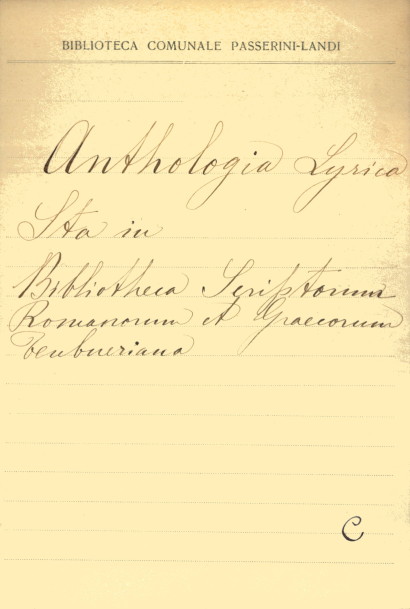 BIBLIOTECA COMUNALE PASSERINI-LANDI
Anthologia Lyrica
Sta in
Bibliotheca Scriptorum
Romanorum et Graecorum
Teubneriana
C